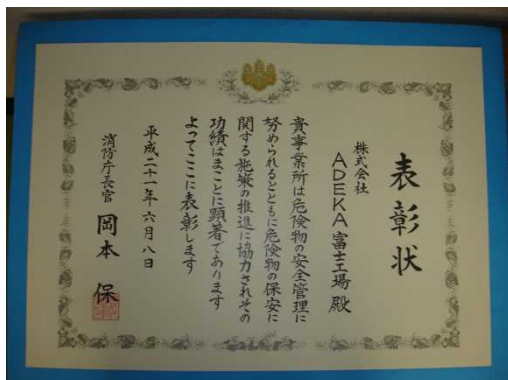 表彰状
株式会社
ADEKA富士工場 殿
貴事業所は危険物の安全管理に
努められるとともに危険物の保安に
関する施策の推進に協力されその
功績はまことに顕著であります
よってここに表彰します
平成二十一年六月八日
消防庁長官 岡本 保